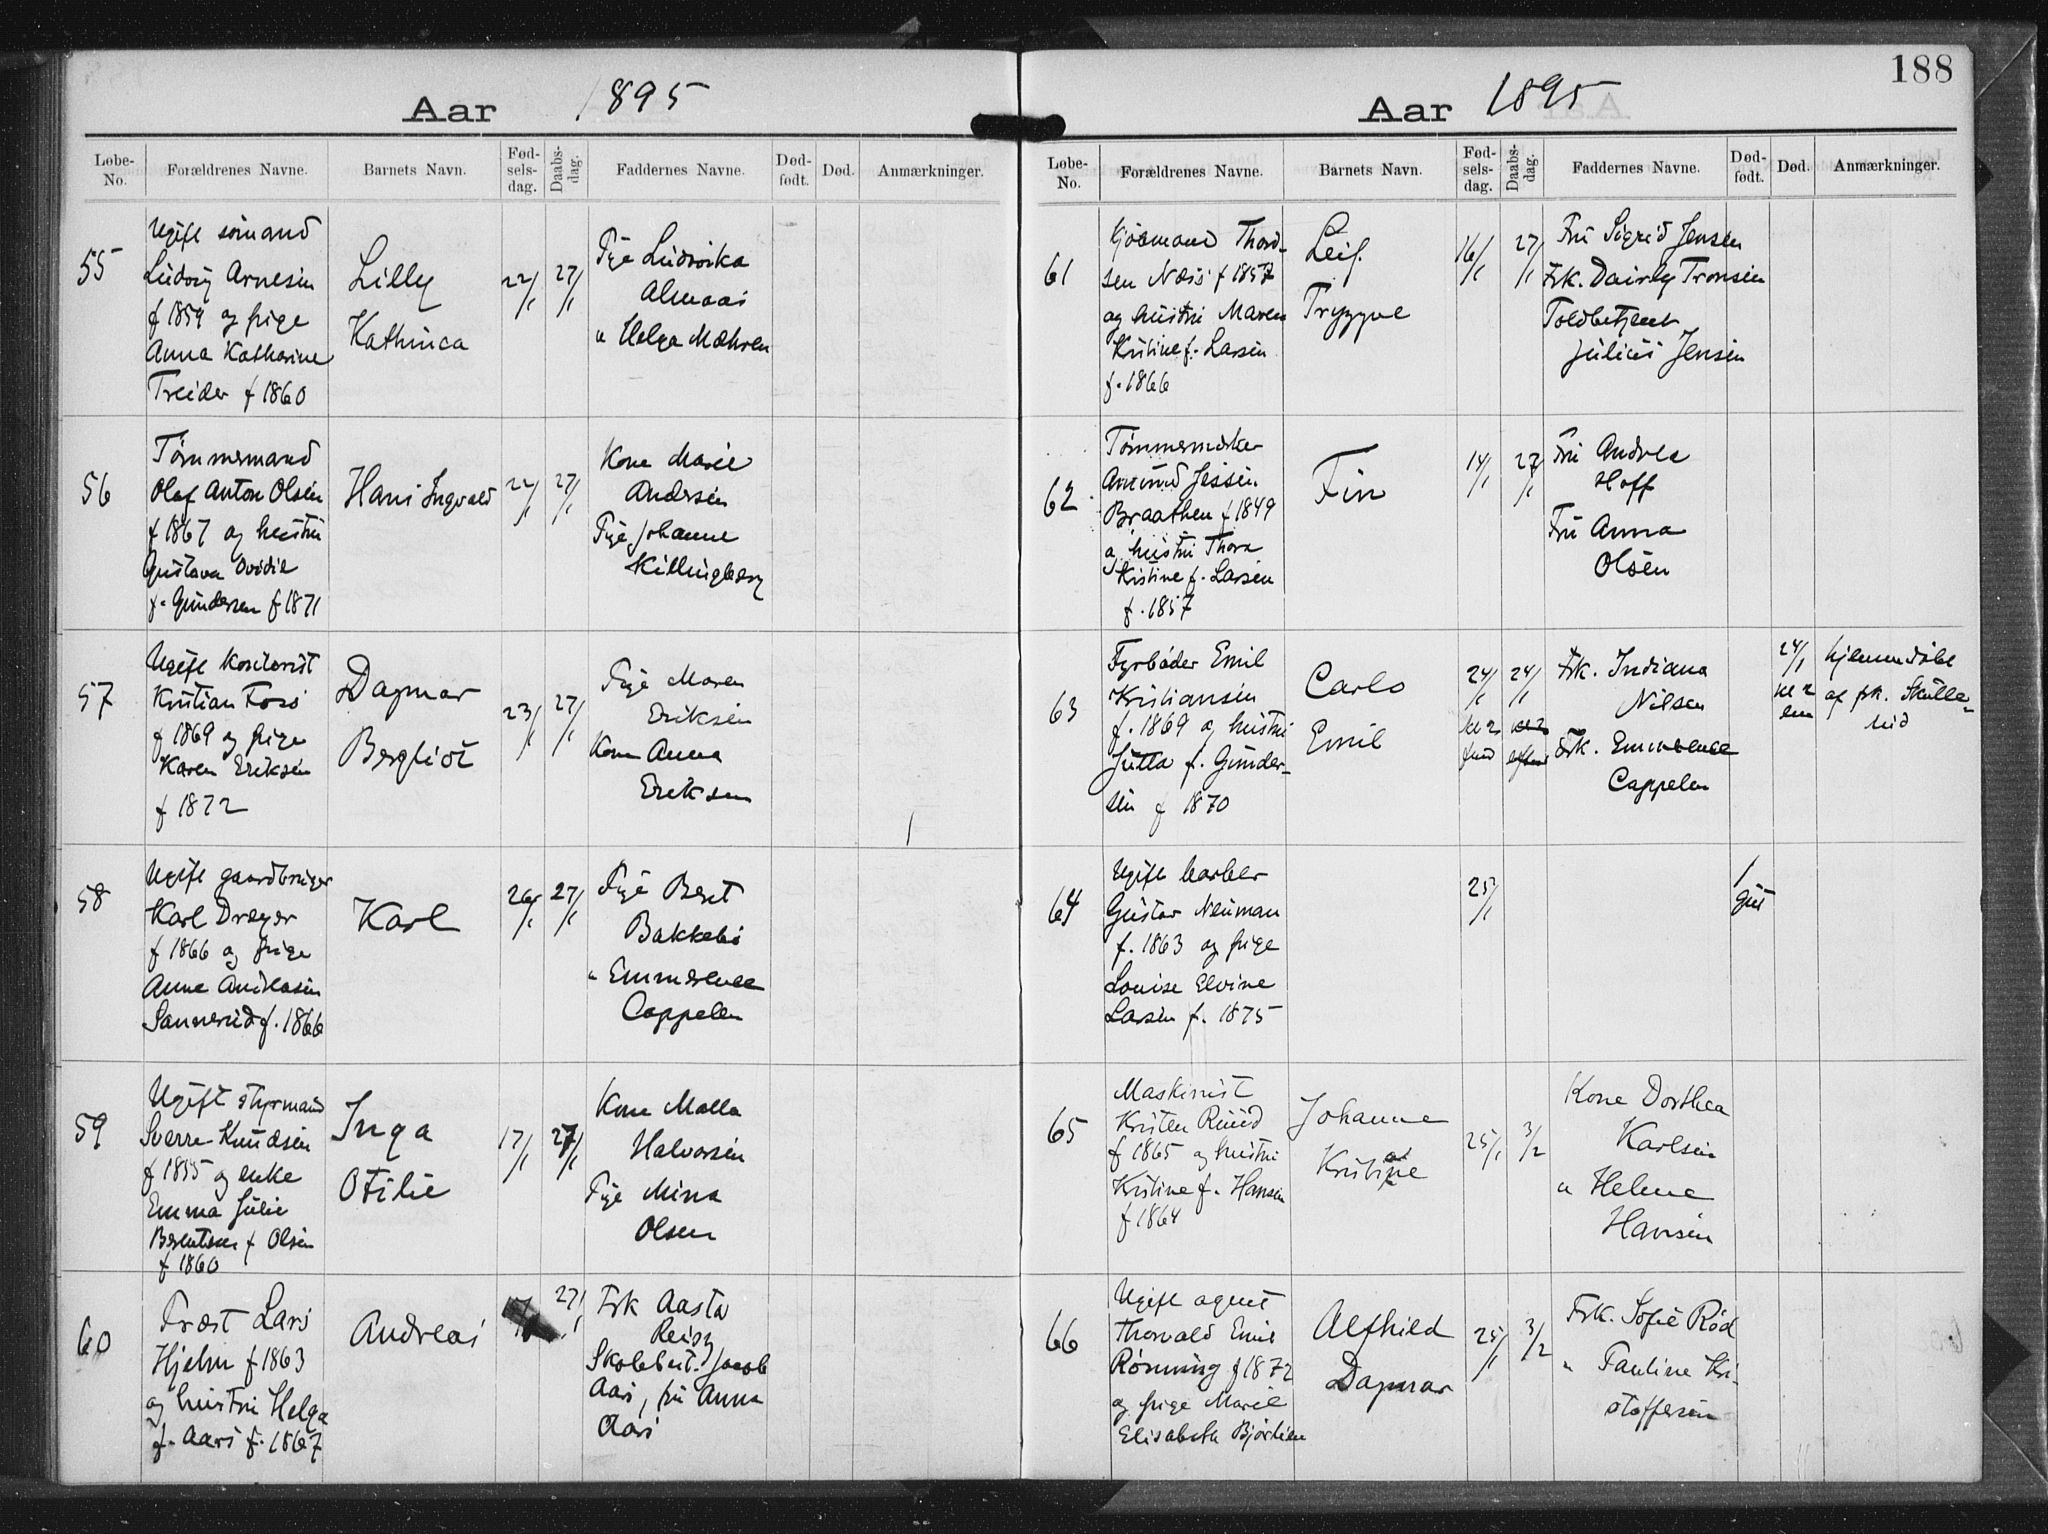 Aar 1895
Løbe-No. Forældrenes Navne. Barnets Navn. Fød-selsdag. Daabs-dag. Faddernes Navne. Død-født. Død. Anmærkninger.
55
Ugift sømand
Ludvig Arnesen
f 1859 og pige
Anna Katharine
Treider f 1860
Lilly
Kathinca
22/1
27/1
Pige Ludovika
Almaas
" Helga Mæhren
56
Tømmermand
Olaf Anton Olsen
f 1867 og hustru
Gustava Ovidie
f. Gundersen f 1871
Hans Ingvald
22/1
27/1
Kone Marie
Andersen
Pige Johanne
Killingberg
57
Ugift kontorist
Kristian Foss
f 1869 og pige
Karen Eriksen
f 1872
Dagmar
Bergliot
23/1
27/1
Pige Maren
Eriksen
Kone Anna
Eriksen
58
Ugift gaardbruger
Karl Dreyer
f 1866 og pige
Anne Andreasen
Sannerud f. 1866
Karl
26/1
27/1
Pige Beret
Bakkebø
" Emmerence
Cappelen
59
Ugift styrmand
Sverre Knudsen
f 1855 og enke
Emma Julie
Berentsen f Olsen
f 1860
Inga
Otilie
17/1
27/1
Kone Malla
Halvorsen
Pige Mina
Olsen
60
Præst Lars
Hjelm f 1863
og hustru Helga
f. Aars f. 1867
Andreas
27/1
Frk Aasta
Reisz
Skolebest. Jacob
Aars, fru Anna
Aars
188
Aar 1895
Løbe-No. Forældrenes Navne. Barnets Navn. Fød-selsdag. Daabs-dag. Faddernes Navne. Død-født. Død. Anmærkninger.
61
Sjømand Thord-
sen Næss f 1857
og hustru Maren
Kristine f. Larsen
f. 1866
Leif
Trygve
16/1
27/1
Fru Sigrid Jensen
Frk. Dairly Tronsen
Toldbetjent
Julius Jensen
62
Tømmermerker
Amund Jessen
Braathen f 1849
og hustru Thora
Kristine f. Larsen
f. 1857
Fin
14/1
27/1
Fru Andrea
Hoff
Fru Anna
Olsen
63
Fyrbøder Emil
Kristiansen
f. 1869 og hustru
Jutta f. Gunder-
sen f 1870
Carlo
Emil
24/1
kl 2
24/1
Frk. Indiana
Nilsen
Frk. Emmerence
Cappelen
24/1
kl 2
em
hjemmedøbt
af frk. Skulle-
rud
64
Ugift barber
Gustav Neuman
f. 1863 og pige
Louise Elvine
Larsen f. 1875
25/1
1
gut
65
Maskinist
Kristen Ruud
f 1865 og hustru
Kristine f. Hansen
f 1864
Johanne
Kristine
25/1
3/2
Kone Dorthea
Karlsen
" Helene
Hansen
66
Ugift agent
Thorvald Emil
Rønning f 1872
og pige Marie
Elisabeth Bjørlien
Alfhild
Dagmar
25/1
3/2
Frk. Sofie Rød
" Pauline Kri-
stoffersen